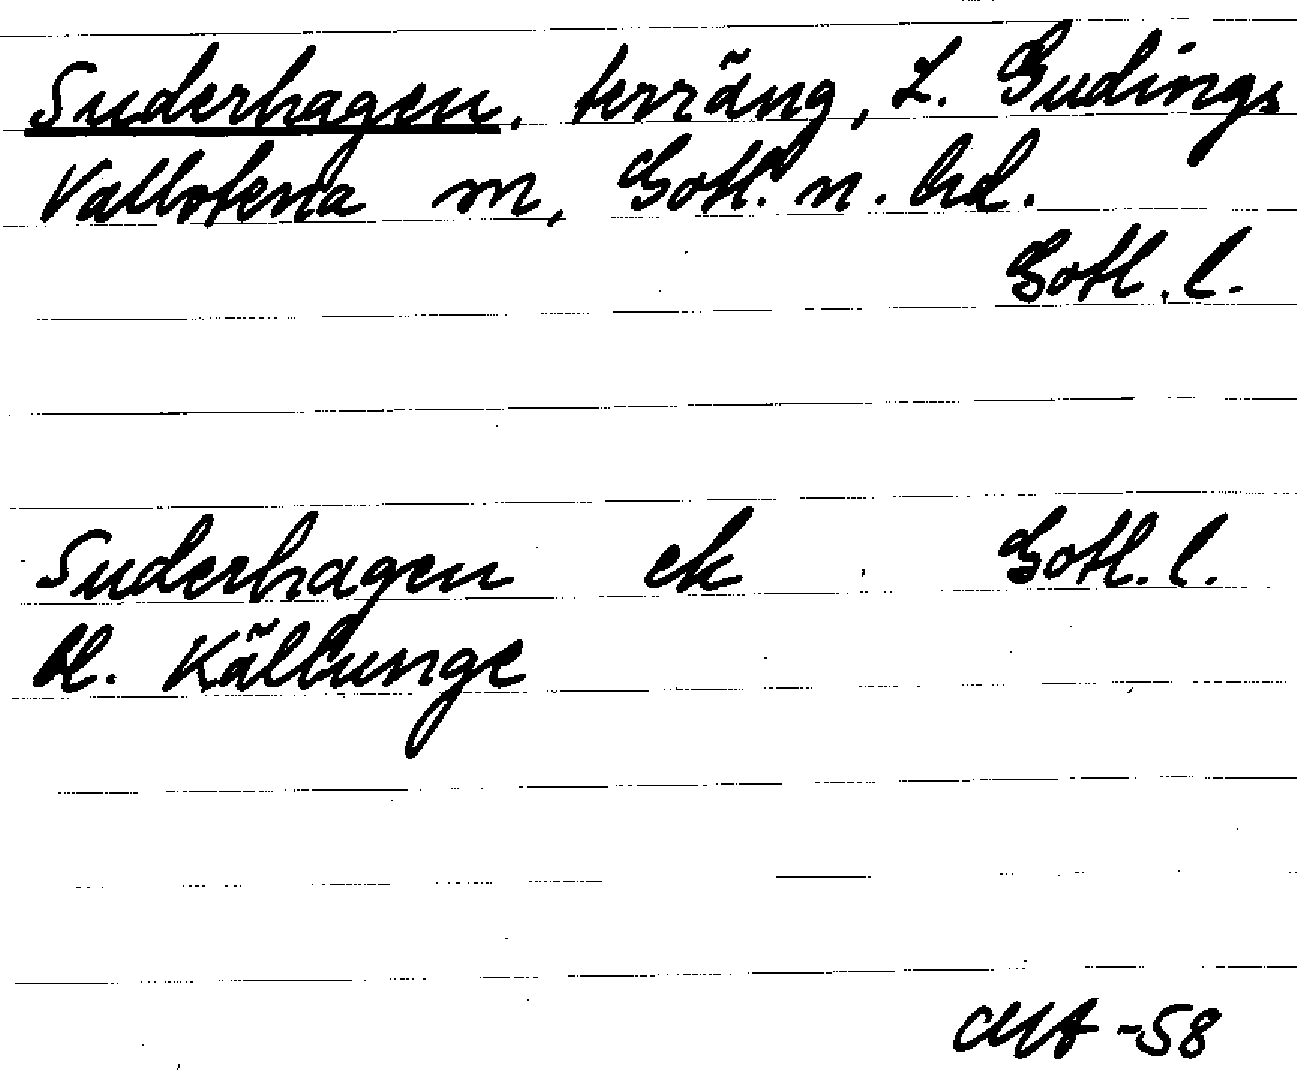 Suderhagen, terräng, L. Gudings
Vallstena sn, Gotl. n. hd.
Gotl. l.
Suderhagen ek Gotl. l.
bl. Källunge
-58